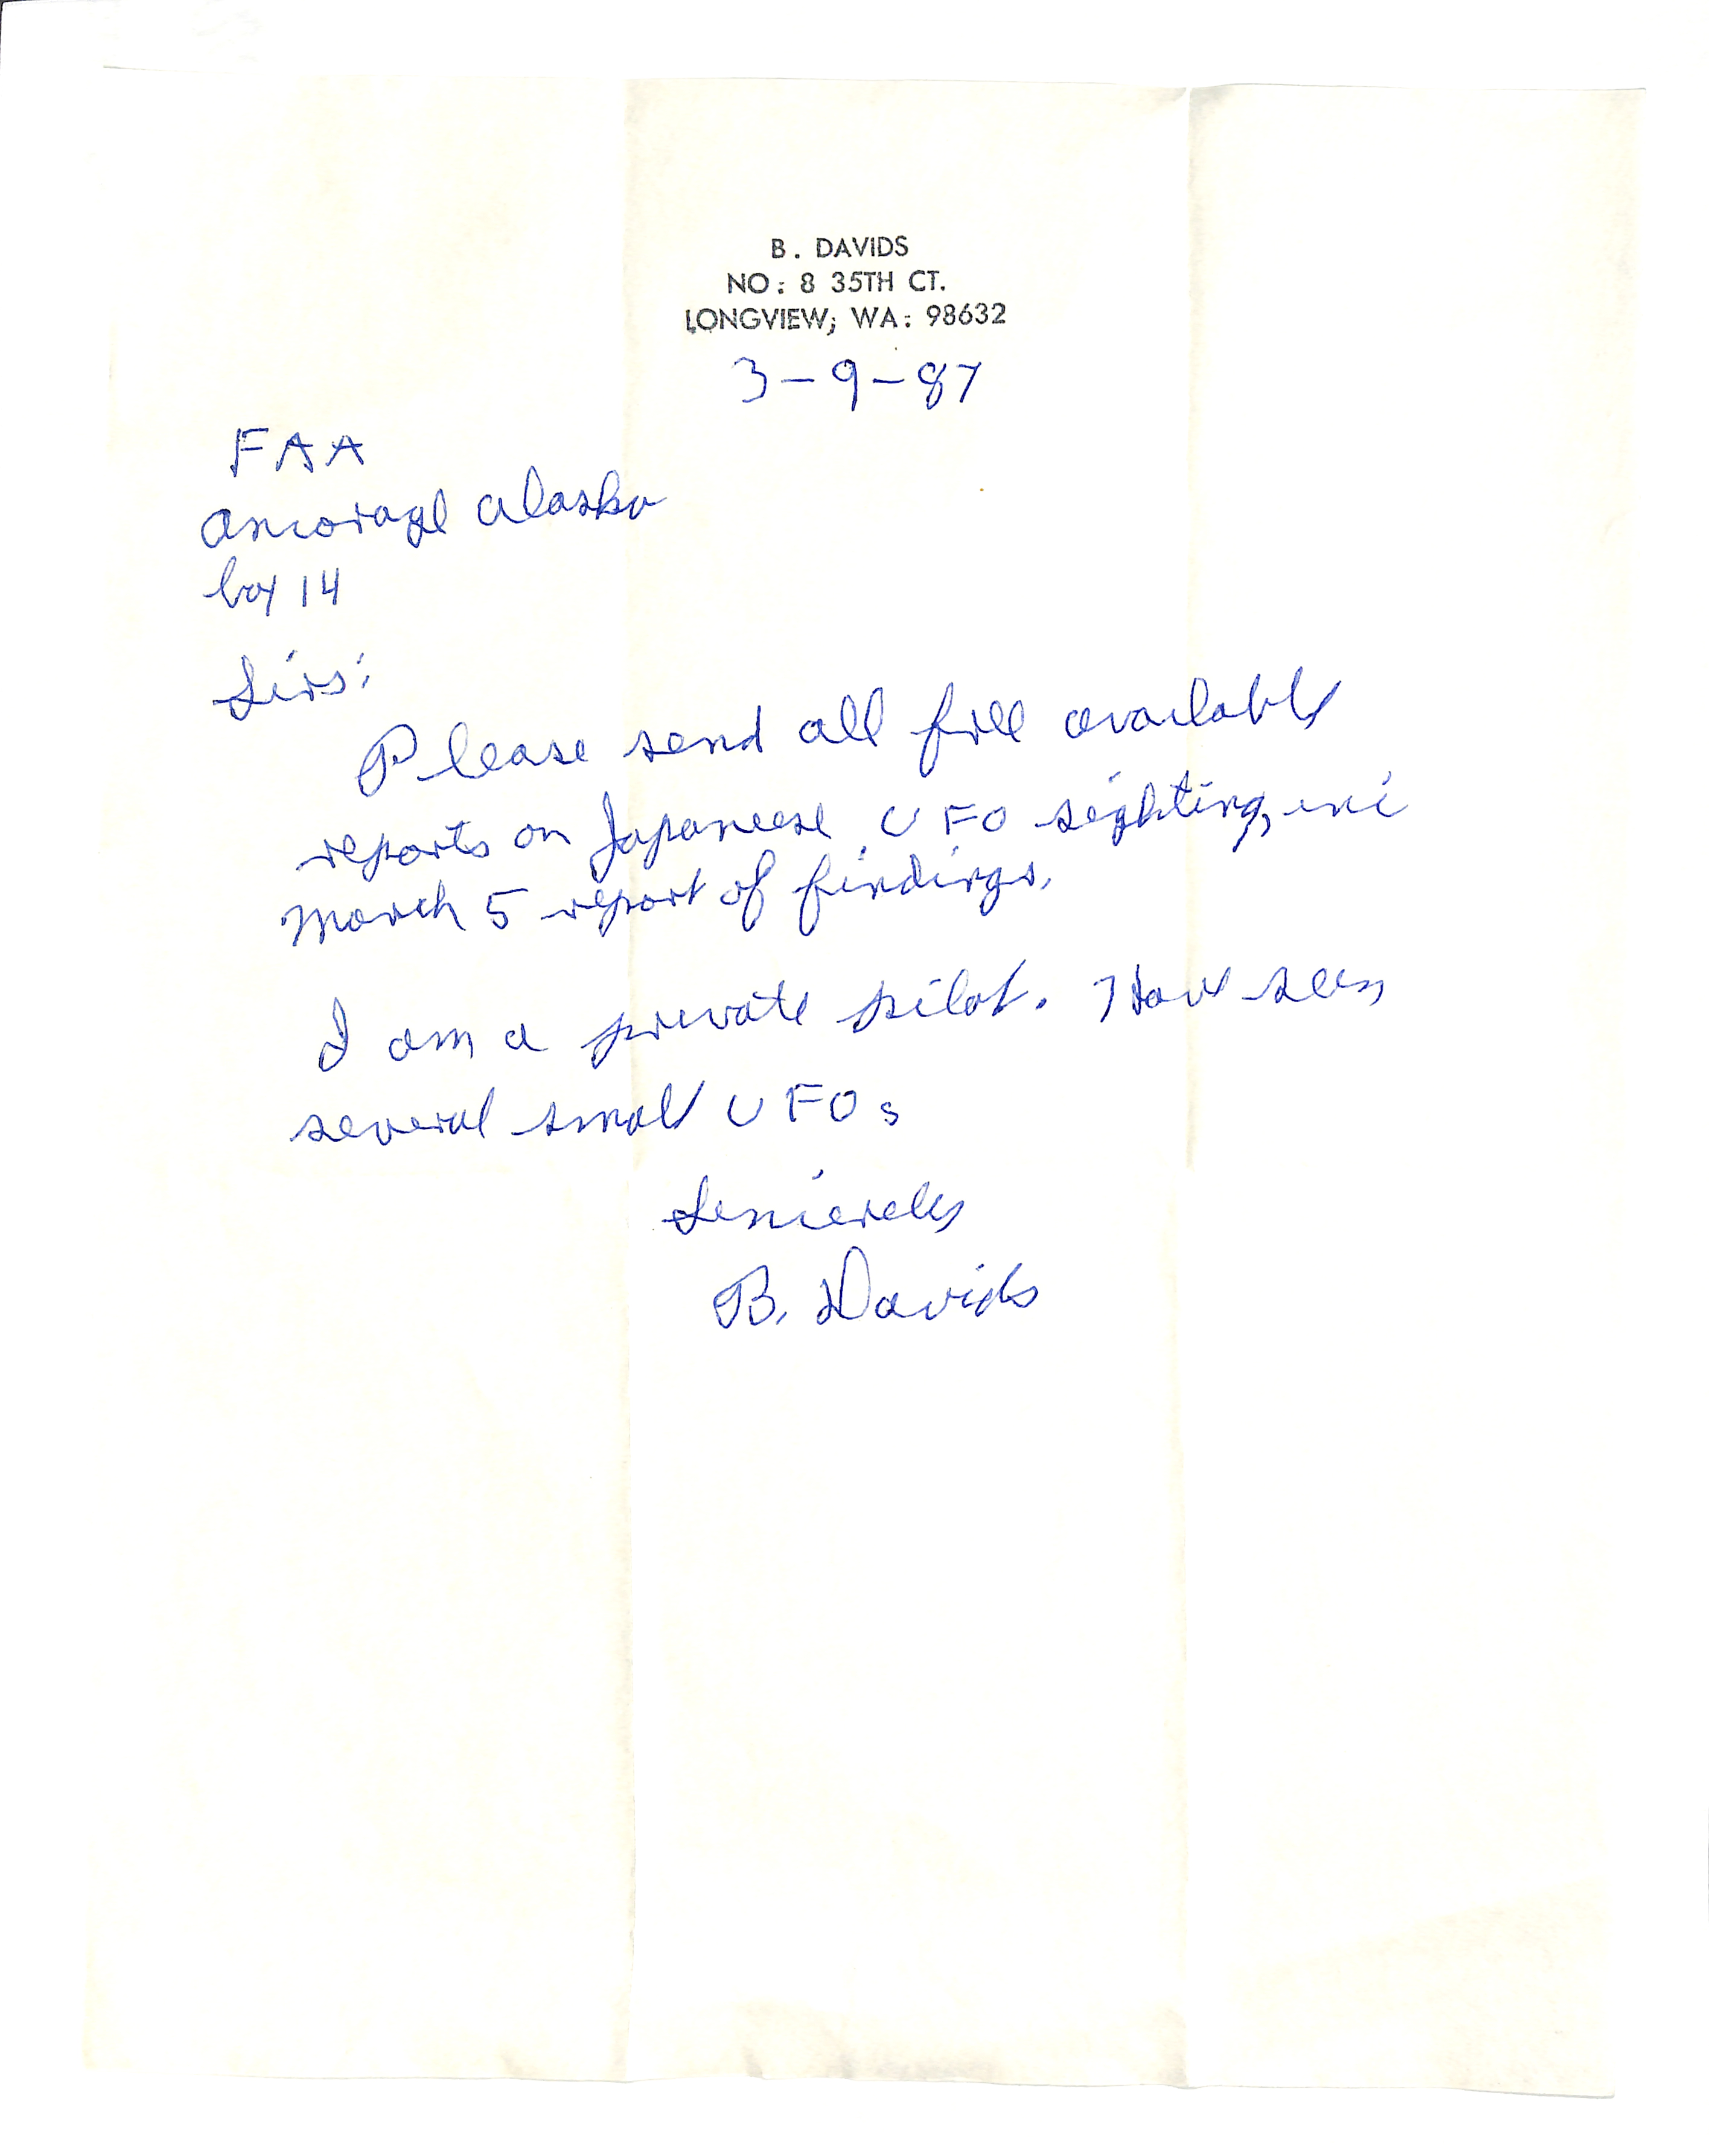 B. DAVIDS
NO: 8 35TH CT.
LONGVIEW; WA: 98632
3-9-87
FAA
Ancorage Alaska
box 14
Sirs:
Please send all free available
reports on Japaneese UFO sighting,
March 5 report of findings.
I am a private pilot. Have seen
several small UFOs
B. Davids